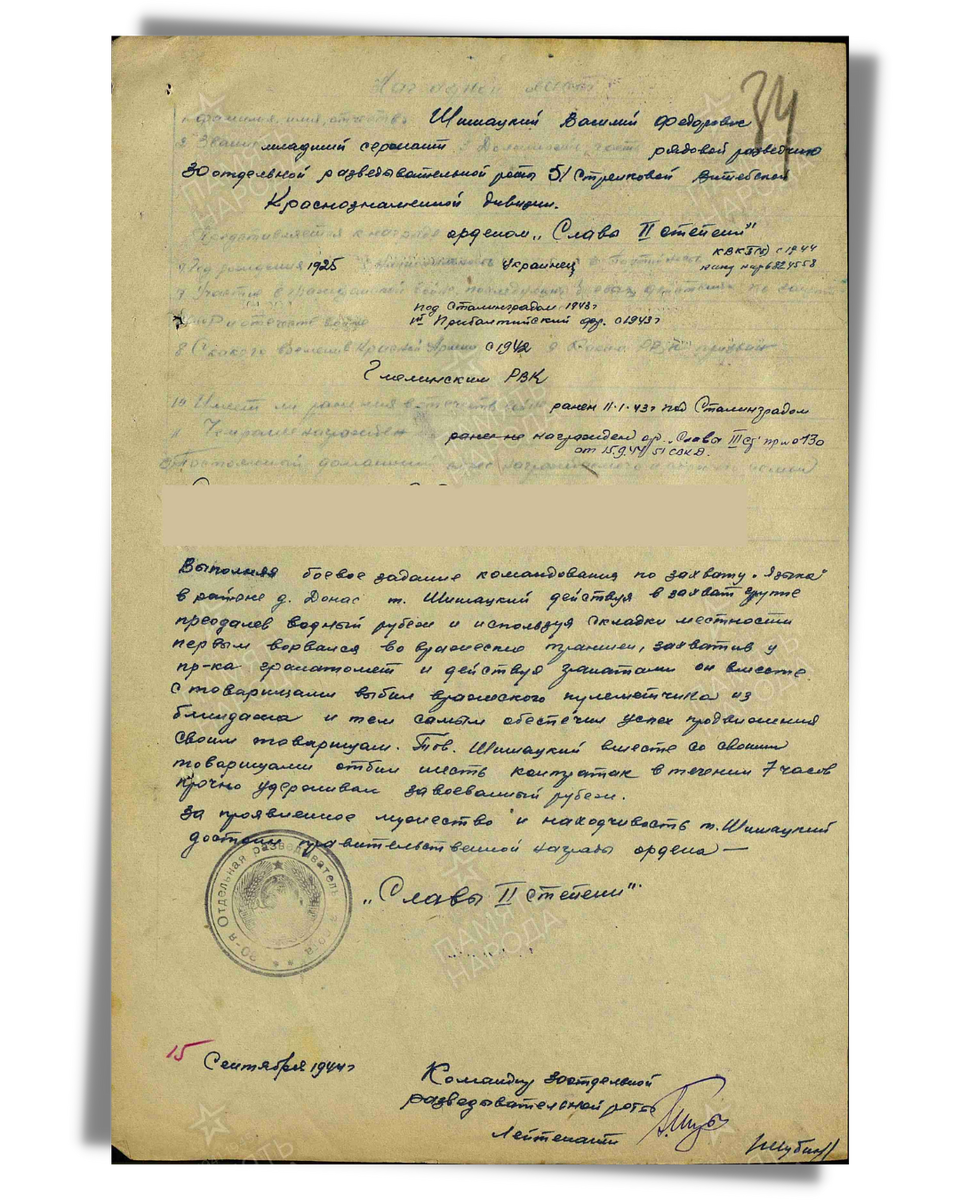 Наградной лист
34
1 Фамилия, имя, отчество Шишацкий Василий Федорович
2 Звание младший сержант 3 Должность, часть рядовой разведчик
30 отдельной разведывательной роты 51 Стрелковой Витебской
Краснознаменной дивизии.
Представляется к награде орденом „Слава II степени"
КВКП(б) с 1944
Год рождения 1925 Национальность Украинец 6 Партийность
7 Участие в гражданской войне, последующих боевых действиях по защите
под Сталинградом 1943г
СССР и отечеств. войне 1й Прибалтийский фр. с 1943г
8 С какого времени в Красной Армии с 1942 9 Каким РВК призван
Гмелинским РВК
10 Имеет ли ранения в отечеств. войне ранен 11.1.43г под Сталинградом
11 Чем ранее награжден ранее награжден ор. „Слава III ст" пр.
от 15.9.44
12 Постоянный домашний адрес награждаемого и адрес его семьи
Выполняя боевое задание командования по захвату „языка"
в районе д. Донас т. Шишацкий действуя в захват группе
преодолев водный рубеж и используя складки местности
первым ворвался во вражескую траншею, захватив у
пр-ка гранатомет и действуя гранатами он вместе
с товарищами выбил вражеского пулеметчика из
блиндажа и тем самым обеспечил успех продвижения
своим товарищам. Тов. Шишацкий вместе со своими
товарищами отбил шесть контратак в течении 7 часов
прочно удерживал завоеванный рубеж.
За проявленное мужество и находчивость т. Шишацкий
достоин правительственной награды ордена —
„Славы II степени".
30-я Отдельная разведыватель рота
15 Сентября 1944г
Командир 30 отдельной
разведывательной роты
Лейтенант
Шубин
ПАМЯТЬ НАРОДА